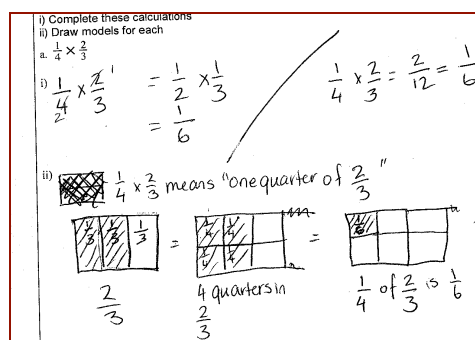 i) Complete these calculations
ii) Draw models for each
a. 1/4 × 2/3
i) 1/4 × 2/3 = 1/2 × 1/3
2 1
= 1/6
1/4 × 2/3 = 2/12 = 1/6
ii) 1/4 × 2/3 means "one quarter of 2/3"
1/3 1/3 1/3 = 1/4 1/4 1/4 1/4 = 1/6
2/3
4 quarters in
2/3
1/4 of 2/3 is 1/6